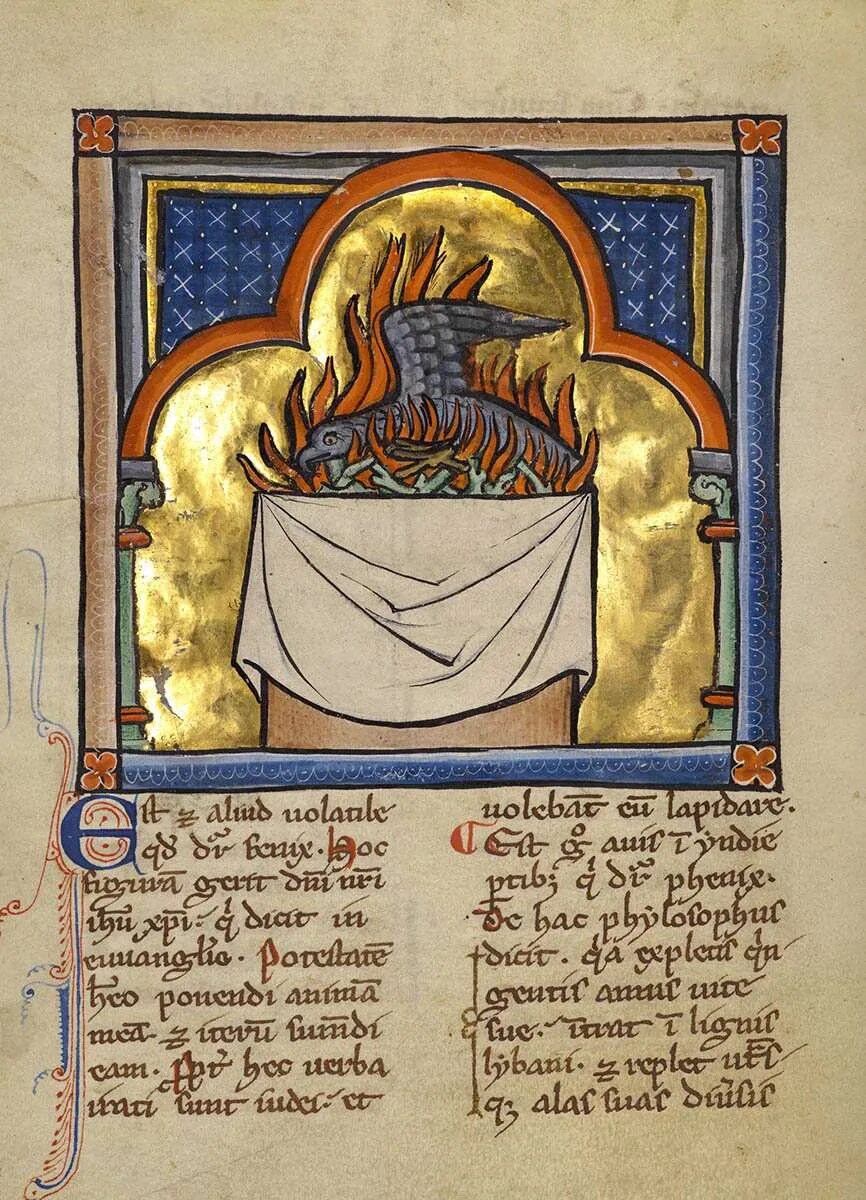 Est ⁊ aliud uolatile
qđ dr̄ fenix. Hoc
figurā gerit dn̄i nr̄i
ihū xp̄i. q̇ dicit in
euuanglīo. Potestatē
hēo ponendi animā
meā. ⁊ iterū sum̄di
eam. Ppt̄ hec uerba
irati sunt iudei. et
uolebāt eū lapidare.
Est ḡ auis ī yndie
ptibꝫ q̇ dr̄ phenix.
De hac phylosophus
dicit. q̇a expletis q̇n
gentis annis uite
sue. ītrat ī lignis
lybani. ⁊ replet utͣsꝫ
qꝫ alas suas diu̾sis